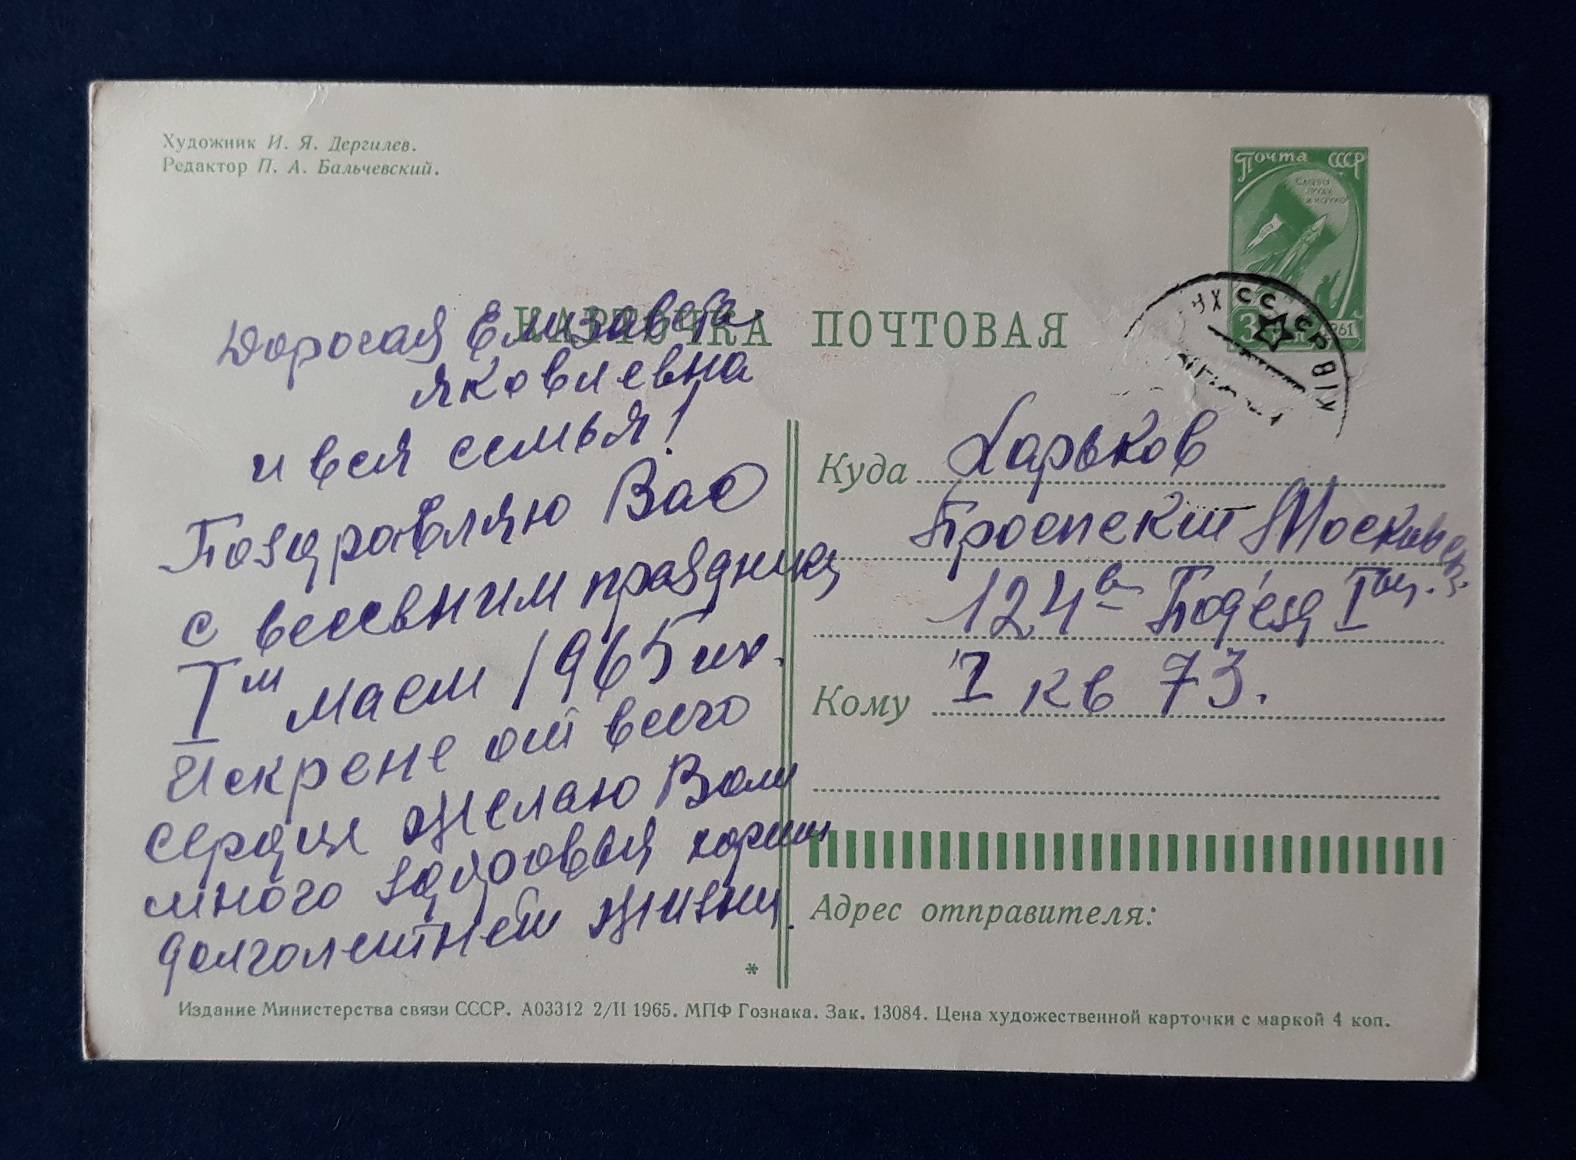 Художник И. Я. Дергилев.
Редактор П. А. Бальчевский.
Почта СССР
СЛАВА
ТРУДУ
И НАУКЕ!
3
1961
СССР
КАРТОЧКА ПОЧТОВАЯ
Дорогая Елизавета
Яковлевна
и вся семья!
Поздравляю Вас
с весевним праздники
I м маем 1965
Искрене от всего
сердце желаю Вам
много здоровья
долголетней жизни.
*
Куда Харьков
Проспект
124 в Подъезд I
Кому I кв 73.
Адрес отправителя:
Издание Министерства связи СССР. А03312 2/II 1965. МПФ Гознака. Зак. 13084. Цена художественной карточки с маркой 4 коп.